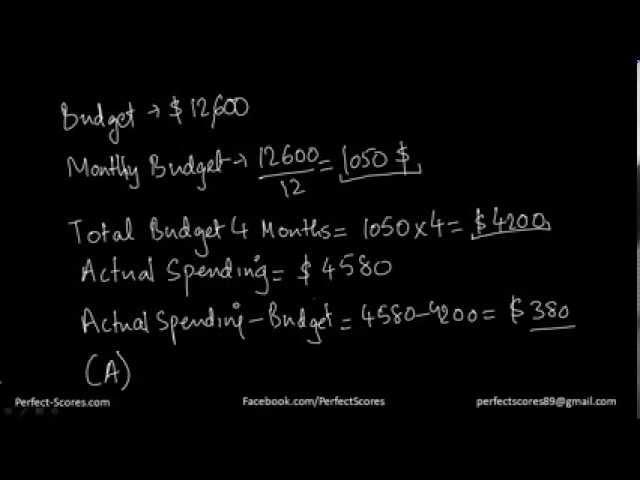 Budget → $ 12,600
Monthly Budget → 12600/12 = 1050 $
Total Budget 4 Months = 1050 x 4 = $ 4200
Actual Spending = $ 4580
Actual Spending - Budget = 4580 - 4200 = $ 380
(A)
Perfect-Scores.com Facebook.com/PerfectScores perfectscores89@gmail.com